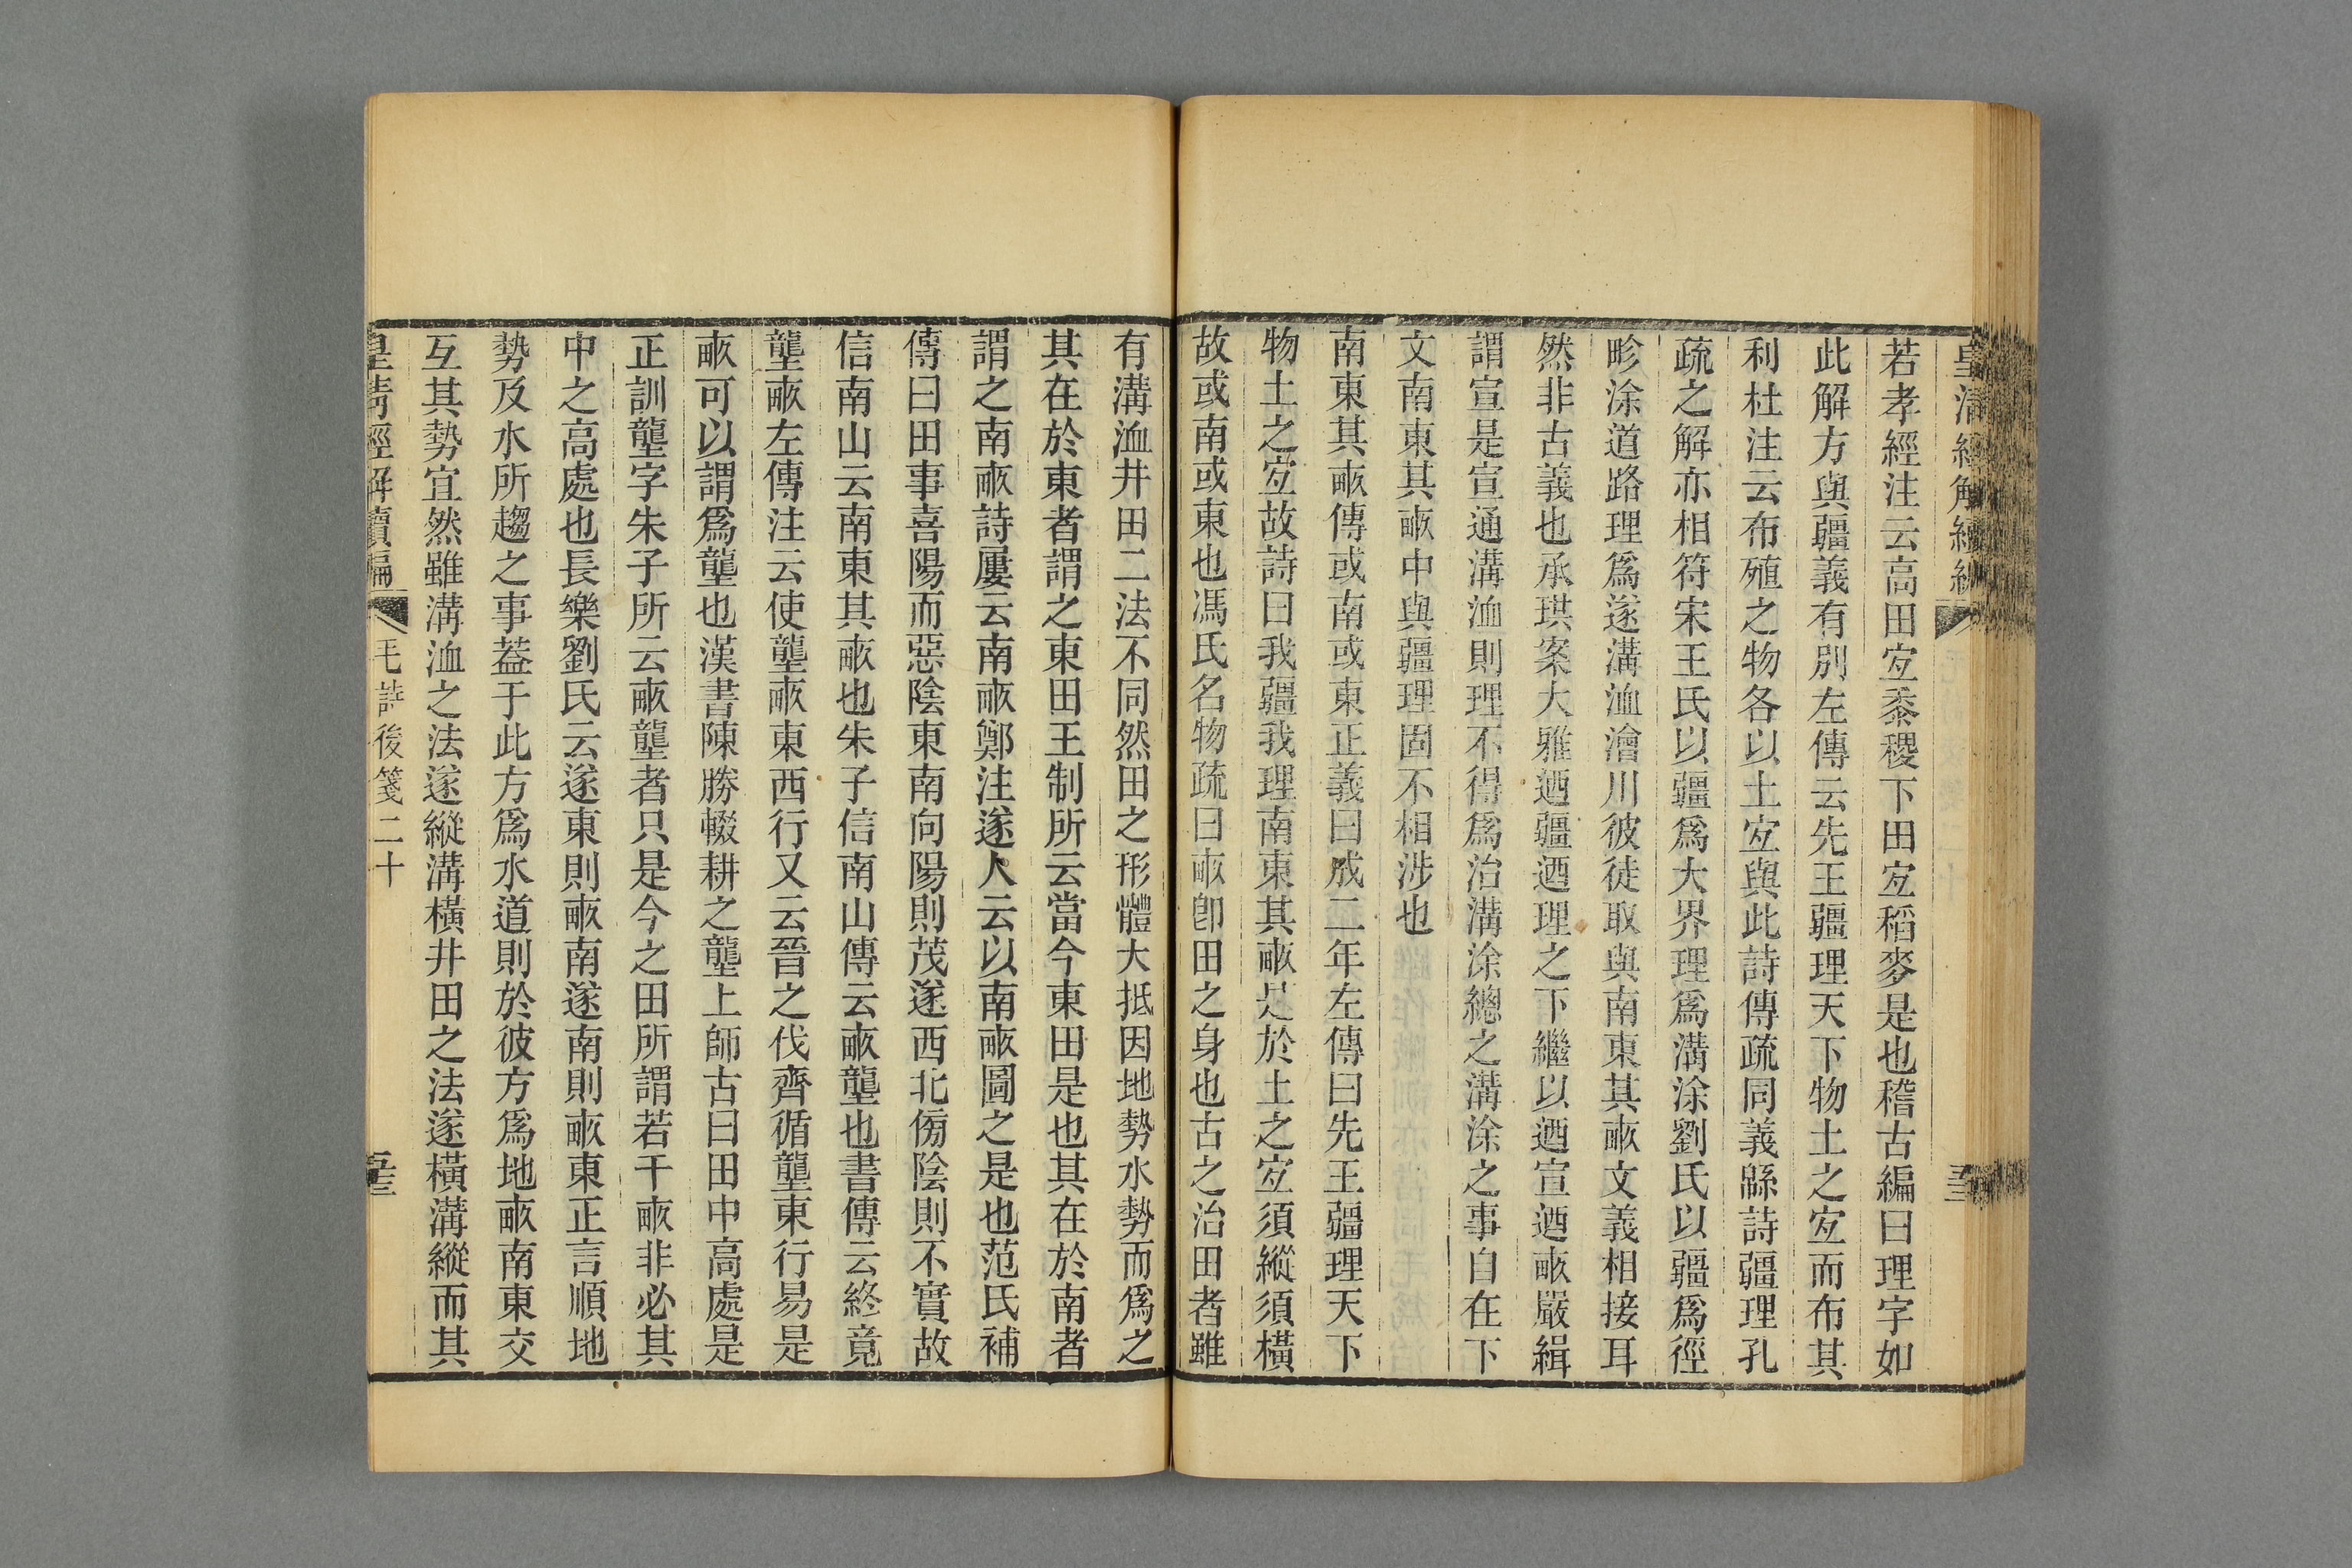 若孝經注云高田宜黍稷下田宜稻麥是也稽古編曰理字如
此解方與疆義有別左傳云先王疆理天下物土之宜而布其
利杜注云布殖之物各以土宜與此詩傳疏同義緜詩疆理孔
疏之解亦相符宋王氏以疆爲大界理爲溝涂劉氏以疆爲徑
畛涂道路理爲遂溝洫澮川彼徒取與南東其畝文義相接耳
然非古義也承珙案大雅迺疆迺理之下繼以迺宣迺畝嚴緝
謂宣是宣通溝洫則理不得爲治溝涂總之溝涂之事自在下
文南東其畝中與疆理固不相涉也
南東其畝傳或南或東正義曰成二年左傳曰先王疆理天下
物土之宜故詩曰我疆我理南東其畝是於土之宜須縱須橫
故或南或東也馮氏名物疏曰畝卽田之身也古之治田者雖
有溝洫井田二法不同然田之形體大抵因地勢水勢而爲之
其在於東者謂之東田王制所云當今東田是也其在於南者
謂之南畝詩屢云南畝鄭注遂人云以南畝圖之是也范氏補
傳曰田事喜陽而惡陰東南向陽則茂遂西北傍陰則不實故
信南山云南東其畝也朱子信南山傳云畝壟也書傳云終竟
壟畝左傳注云使壟畝東西行又云晉之伐齊循壟東行易是
畝可以謂爲壟也漢書陳勝輟耕之壟上師古曰田中高處是
正訓壟字朱子所云畝壟者只是今之田所謂若干畝非必其
中之高處也長樂劉氏云遂東則畝南遂南則畝東正言順地
勢及水所趨之事蓋于此方爲水道則於彼方爲地畝南東交
互其勢宜然雖溝洫之法遂縱溝橫井田之法遂橫溝縱而其
皇清經解續編 毛詩後箋二十